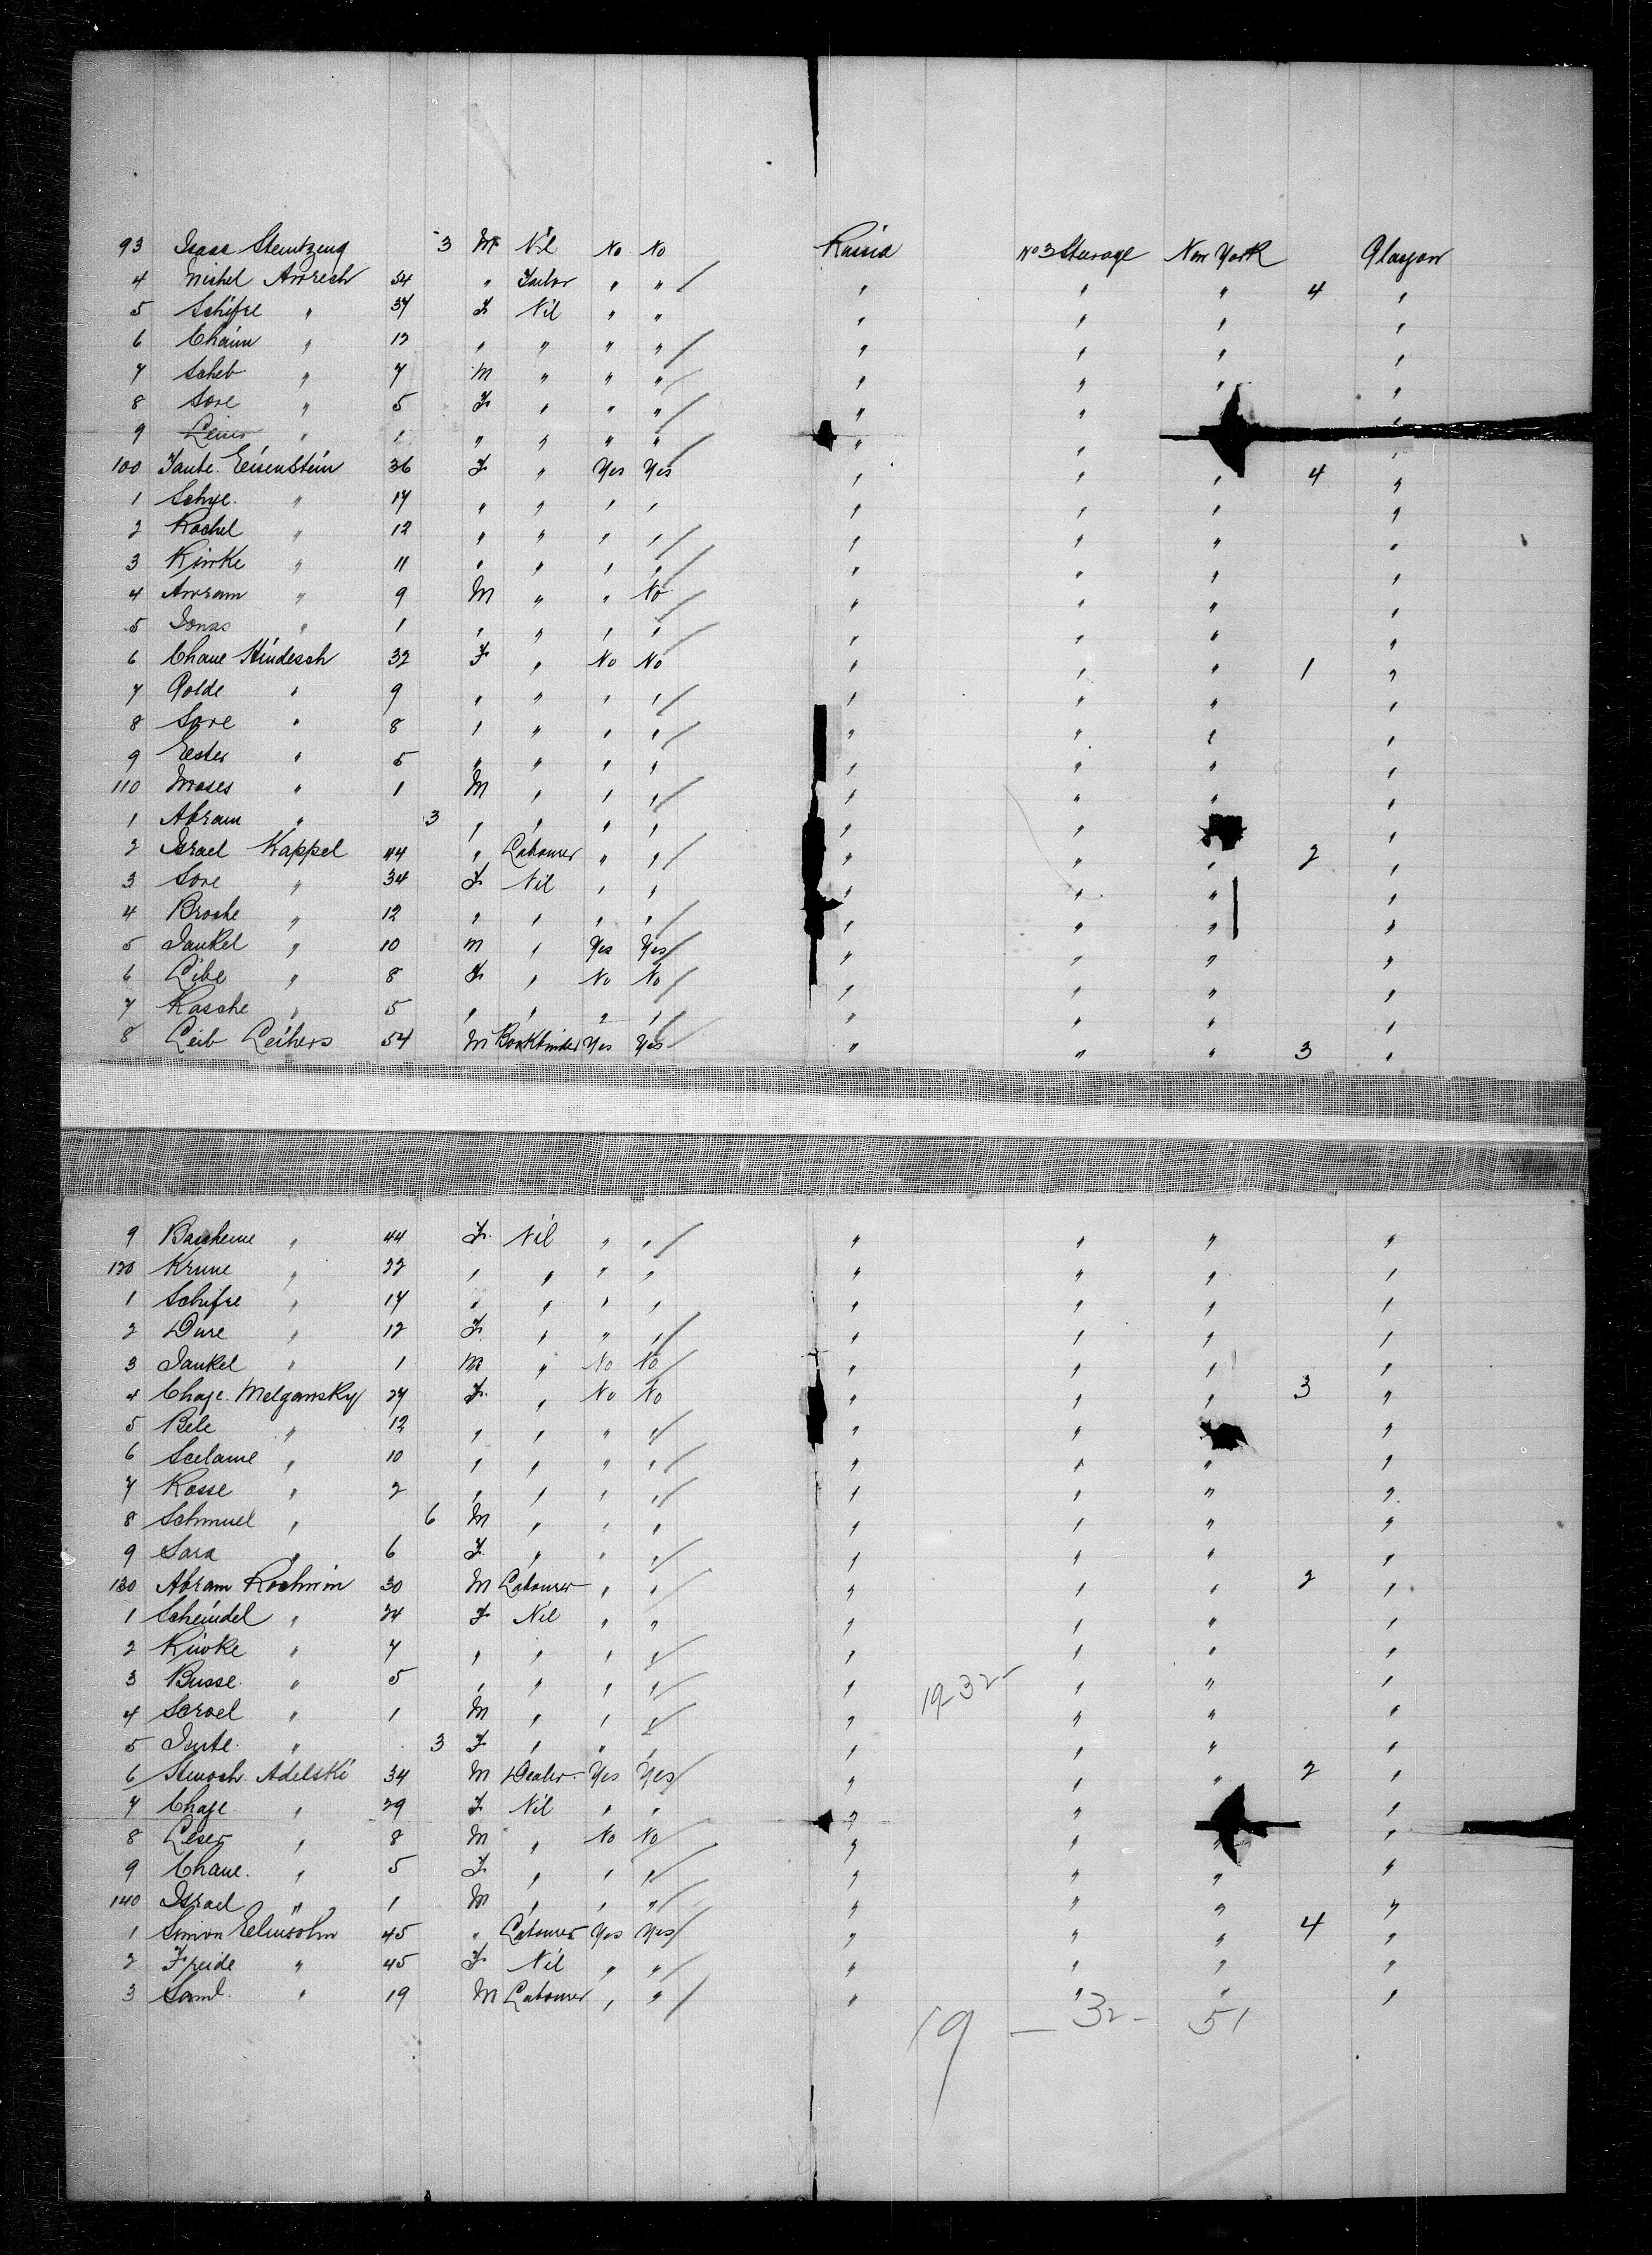 93 Isaac Steintzeug 3 M Nil No No Russia No 3 Steerage New York Glasgow
4 Michel Anrech 54 " Tailor " " " " " 4 "
5 Schifre " 37 F Nil " " " " " "
6 Chaim " 12 " " " " " " " "
7 Scheb " 7 M " " " " " " "
8 Sore " 5 F " " " " " " "
9 " 1 " " " " " " "
100 Taube Eisenstein 36 F " Yes Yes " " " 4 "
1 " 17 " " " " " " " "
2 Rachel " 12 " " " " " " " "
3 " 11 " " " " " " " "
4 Amram " 9 M " " No " " " "
5 Jonas " 1 " " " " " " " "
6 Chane Hindesch 32 F " No No " " " 1 "
7 Golde " 9 " " " " " " " "
8 Sore " 8 " " " " " " " "
9 Eester " 5 " " " " " " " "
110 Moses " 1 M " " " " " " "
1 Abram " 3 " " " " " " "
2 Israel Kappel 44 " Labourer " " " " " 2 "
3 Sore " 34 F Nil " " " " " "
4 Broche " 12 " " " " " " " "
5 Jankel " 10 M " Yes Yes " " " "
6 Libe " 8 F " No No " " " "
7 Rasche " 5 " " " " " " " "
8 Leib Leihers 54 M Bookbinder Yes Yes " " " 3 "
9 Bascheine " 44 F Nil " " " " " "
120 Krune " 22 " " " " " " " "
1 Schifre " 17 " " " " " " " "
2 Dwre " 12 F " " " " " " "
3 Jankel " 1 M " No No " " " "
4 Chaje Melgamsky 27 F " No No " " " 3 "
5 Bele " 12 " " " " " " "
6 Scelame " 10 " " " " " " " "
7 Rosse " 2 " " " " " " " "
8 Schmuel " 6 M " " " " " " "
9 Sara " 6 F " " " " " " "
130 Abram Rochmin 30 M Labourer " " " " " 2 "
1 Scheindel " 24 F Nil " " " " " "
2 Riwke " 7 " " " " " " " "
3 Busse " 5 " " " " " 19-32- " " "
4 Soroel " 1 M " " " " " " "
5 " 3 F " " " " " " "
6 Henoch Adelski 34 M Dealer Yes Yes " " " 2 "
7 Chaje " 29 F Nil " " " " "
8 Leser " 8 M " No No " " " "
9 Chane " 5 F " " " " " " "
140 Israel " 1 M " " " " " " "
1 Simon Eelinsohn 45 " Labourer Yes Yes " " " 4 "
2 Freide " 45 F Nil " " " " " "
3 Saml. " 19 M Labourer " " " " " "
19 - 32 - 51